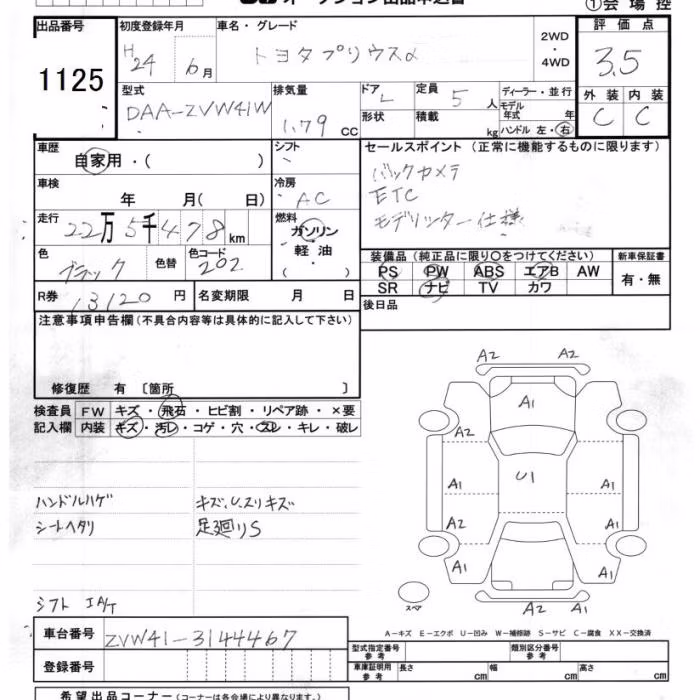 オークション出品申込書
①会場控
出品番号
1125
初度登録年月
H24 6月
車名・グレード
トヨタプリウスα
2WD
・
4WD
評価点
3.5
外装 内装
C C
型式
DAA-ZVW41W
排気量
1.79 CC
ドア
形状
定員
5人
積載
kg
ディーラー・並行
モデル
年式 年
ハンドル 左・右
車歴
自家用・( )
シフト
車検
年 月( 日)
冷房
AC
走行
22万5千478km
燃料
ガソリン
・
軽油
( )
色
ブラック
色替
色コード
202
R券
13120円
名変期限 月 日
セールスポイント (正常に機能するものに限ります)
バックカメラ
ETC
モデリッター仕様
装備品 (純正品に限り○をつけてください)
PS PW ABS エアB AW
SR ナビ TV カワ
新車保証書
有・無
後日品
注意事項申告欄(不具合内容等は具体的に記入して下さい)
修復歴 有 〔箇所 〕
検査員
記入欄
FW キズ・飛石・ヒビ割・リペア跡・×要
内装 キズ・汚レ・コゲ・穴・スレ・キレ・破レ
ハンドルハゲ
シートヘタリ
シフト IA/T
キズ、U、スリキズ
足廻りS
A2 A2
A1
A2
U1
A1 A1
A2 A1
A1 A1
A2 A1
スペア
A-キズ E-エクボ U-凹み W-補修跡 S-サビ C-腐食 XX-交換済
車台番号
ZVW41-3144467
登録番号
型式指定番号
参考
類別区分番号
参考
車庫証明用
参考
長さ cm 幅 cm 高さ cm
希望出品コーナー(コーナーは各会場により異なります。)